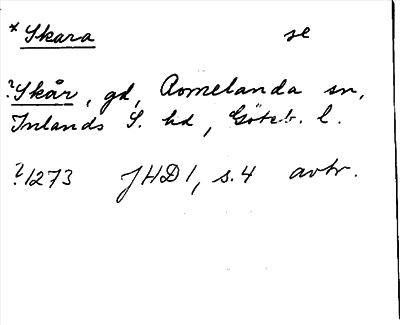 *Skara se
?Skår, gd, Romelanda sn,
Inlands S. hd, Göteb. l.
?1273 JHD 1, s.4 avtr.